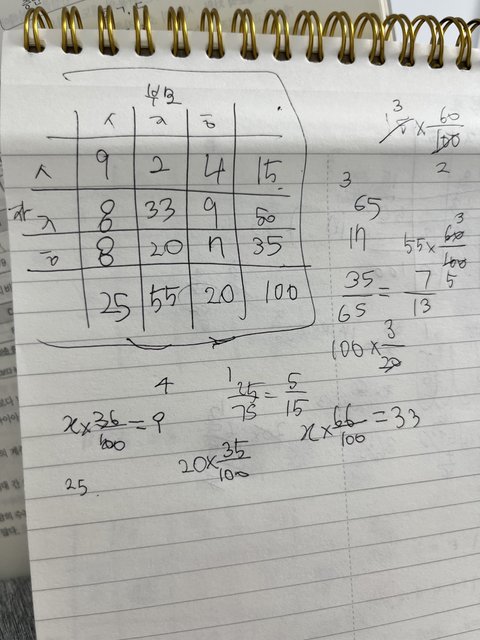 부모
ㅅ ㅈ ㅎ
ㅅ 9 2 4 15
자
ㅈ 8 33 9 50
ㅎ 8 20 7 35
25 55 20 100
3
15 × 60/100
2
3
65
17
55 × 60/100
3
5
35/65 = 7/13
100 × 3/20
4
x × 36/100 = 9
1
25/75 = 5/15
x × 66/100 = 33
20 × 35/100
25